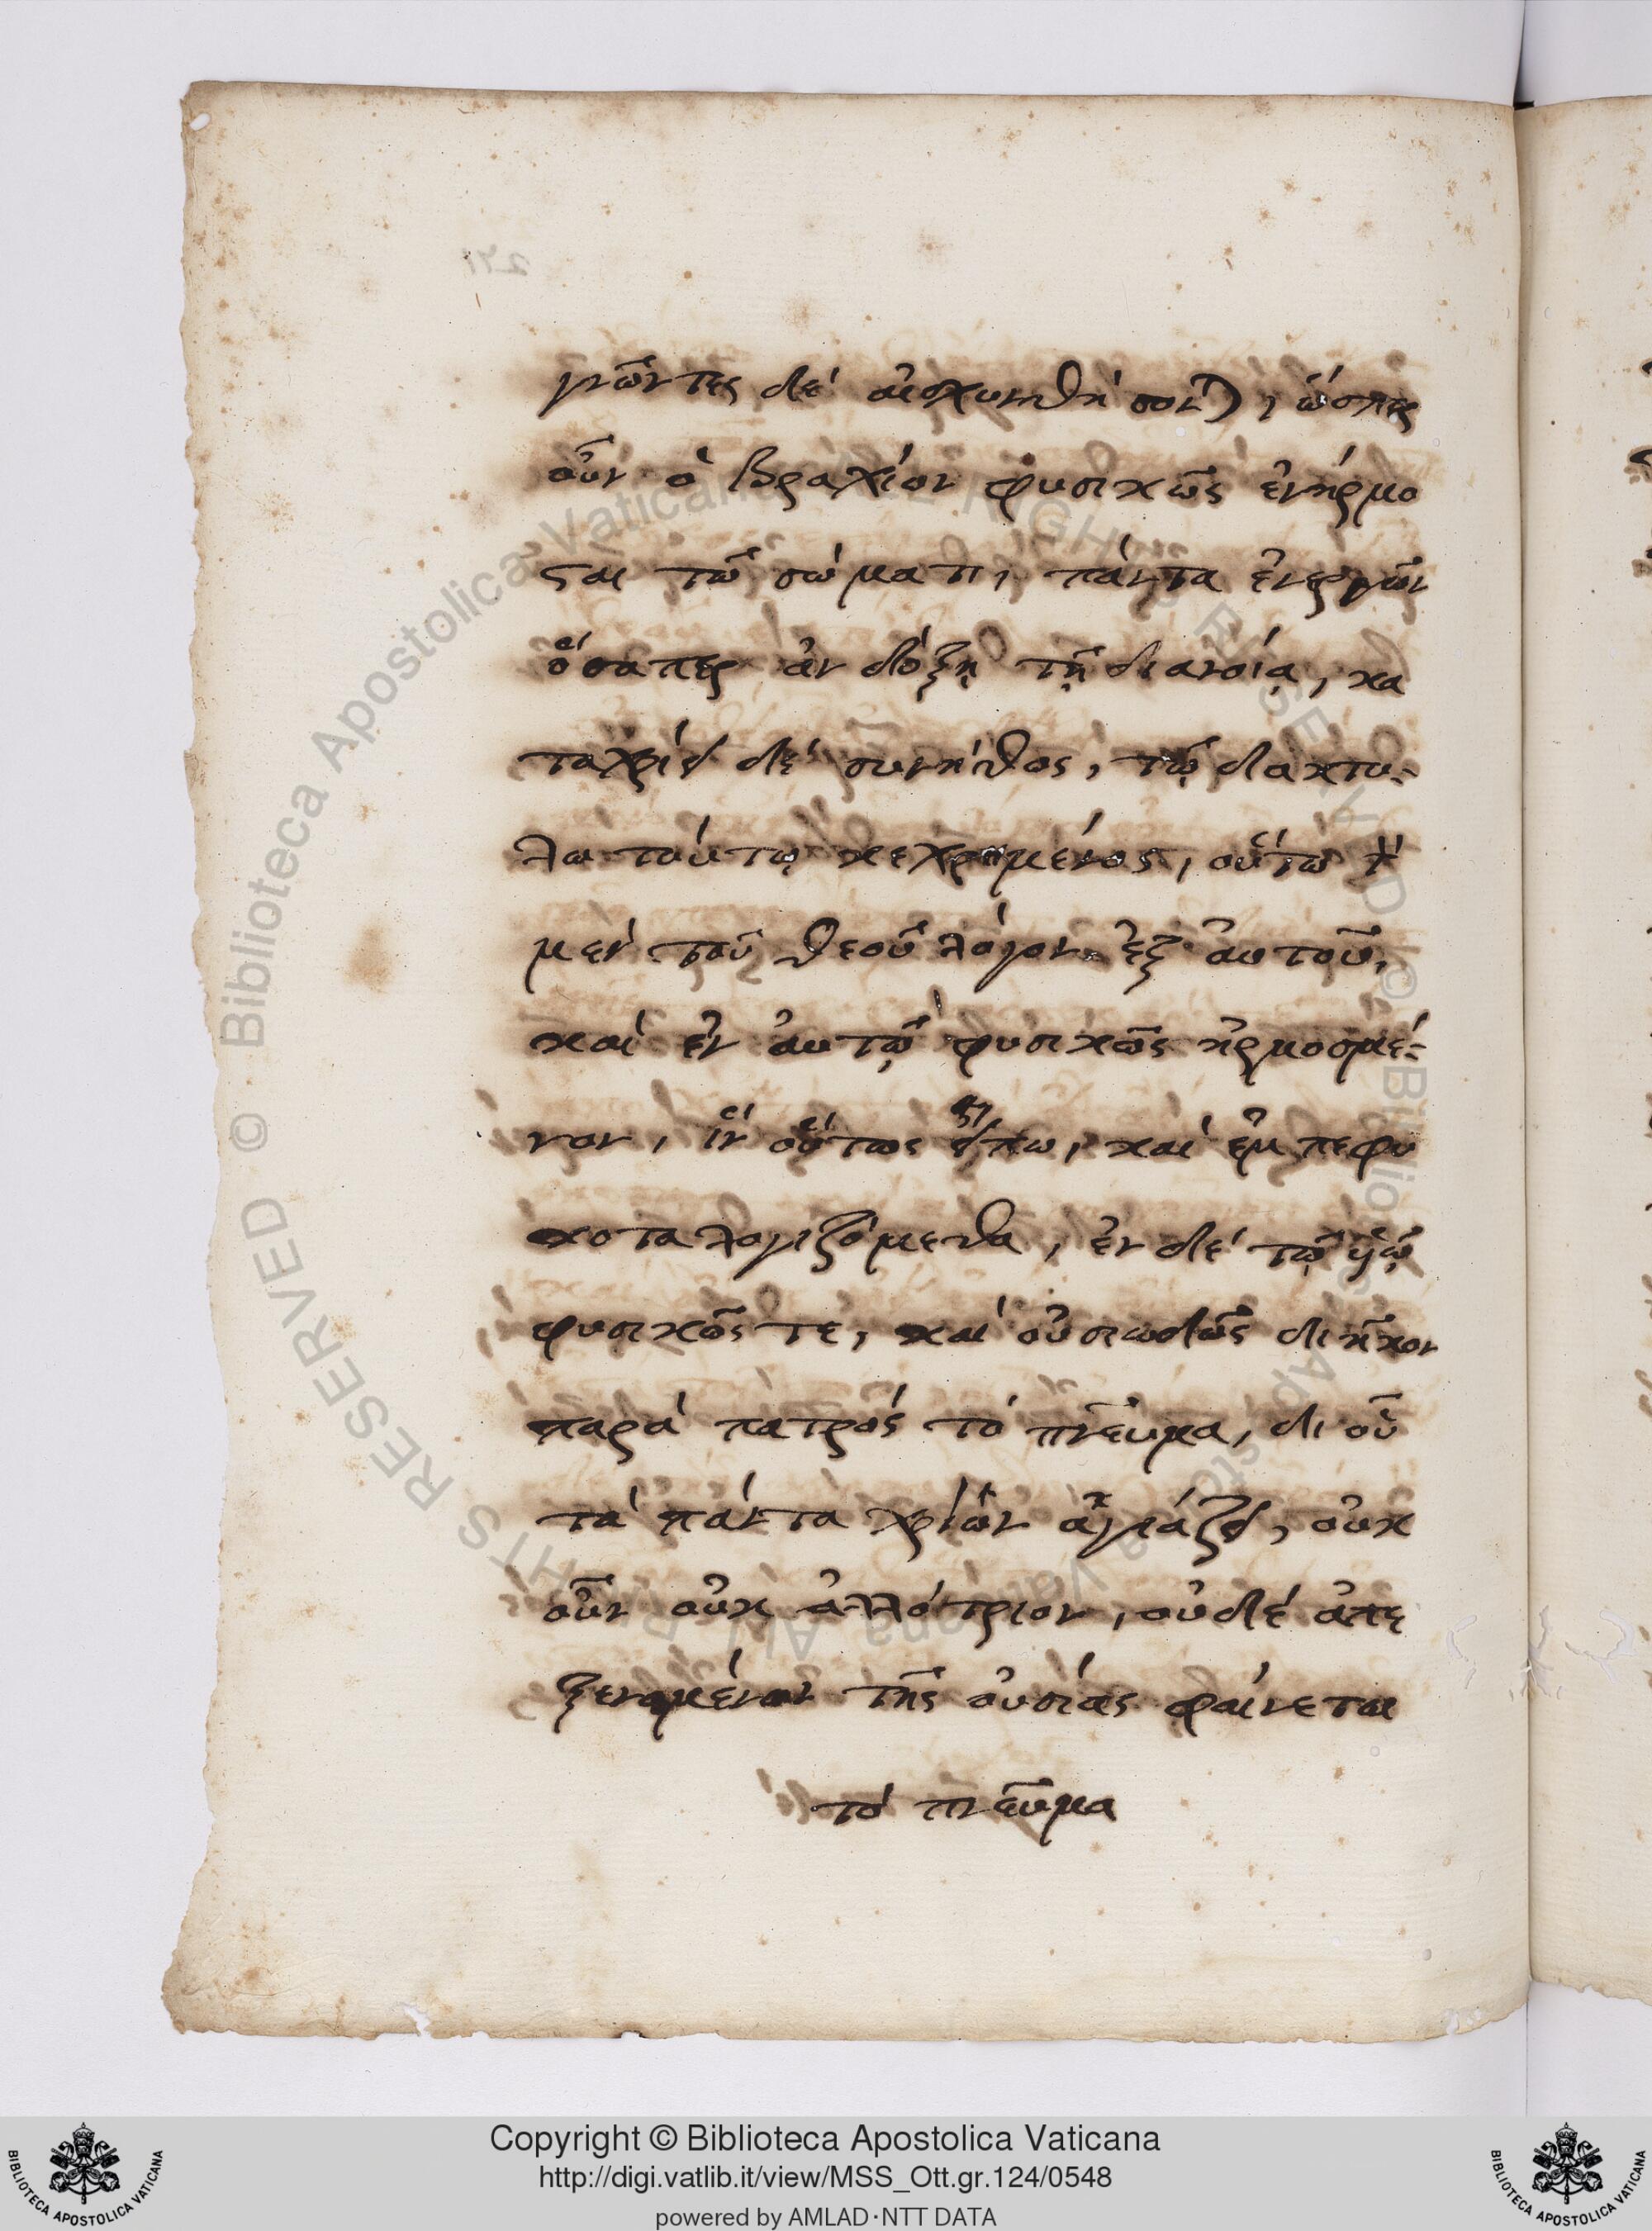 γνῶντες δὲ αἰσχυνθήσονται, ὥσπερ
οὖν ὁ βραχίον φυσικῶς ἐνήρμο
σται τῶ σώματι, πάντα ἐνεργῶν
ὅσαπερ ἀν δόξῃ τῇ διανοίᾳ, κα
ταχρίει δὲ συνήθος, τῷ δακτυ-
λω τούτῳ κεχρημένος, οὕτω τὸν
μὲν τοῦ θεοῦ λόγον ἐξ αὐτοῦ,
καὶ ἐν αὐτῷ φυσικῶς ἡρμοσμέ-
νον, ἵν οὕτως εἴπω, καὶ ἐμπεφυ
κοτα λογιζόμεθα, ἐν δὲ τῷ υἱῷ
φυσικῶς τε, καὶ οὐσιωδῶς διῆκον
παρὰ πατρός τὸ πνεῦμα, δι οὗ
τὰ πάντα χρίων ἁγιάζει, οὐκ
οὖν οὐκ ἀλλότριον, οὐδὲ ἀπε
ξενωμένον τῆς οὐσίας φαίνεται
τὸ πνεῦμα
Copyright © Biblioteca Apostolica Vaticana
http://digi.vatlib.it/view/MSS_Ott.gr.124/0548
powered by AMLAD·NTT DATA
BIBLIOTECA APOSTOLICA VATICANA
BIBLIOTECA APOSTOLICA VATICANA